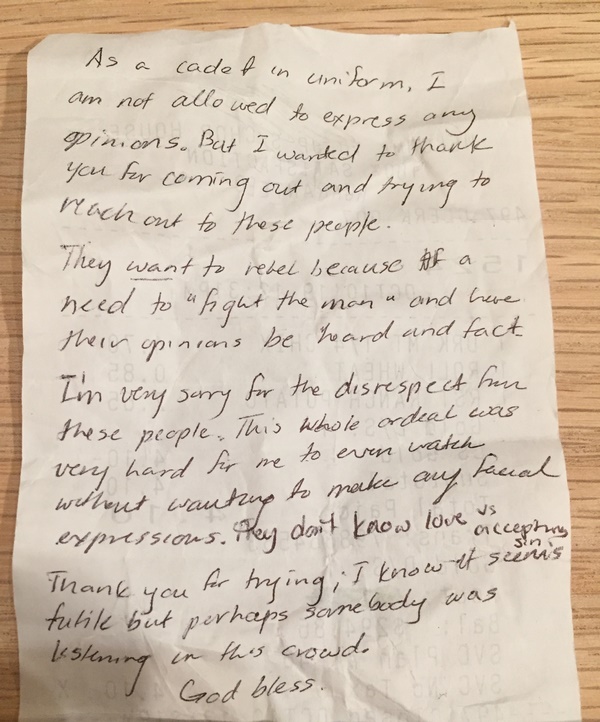 As a cadet in uniform, I
am not allowed to express any
opinions. But I wanted to thank
you for coming out and trying to
reach out to these people.
They want to rebel because of a
need to "fight the man" and have
their opinions be heard and fact
I'm very sorry for the disrespect from
these people. This whole ordeal was
very hard for me to even watch
without wanting to make any facial
expressions. They don't know love vs accepting sin.
Thank you for trying; I know it seems
futile but perhaps somebody was
listening in this crowd.
God bless.